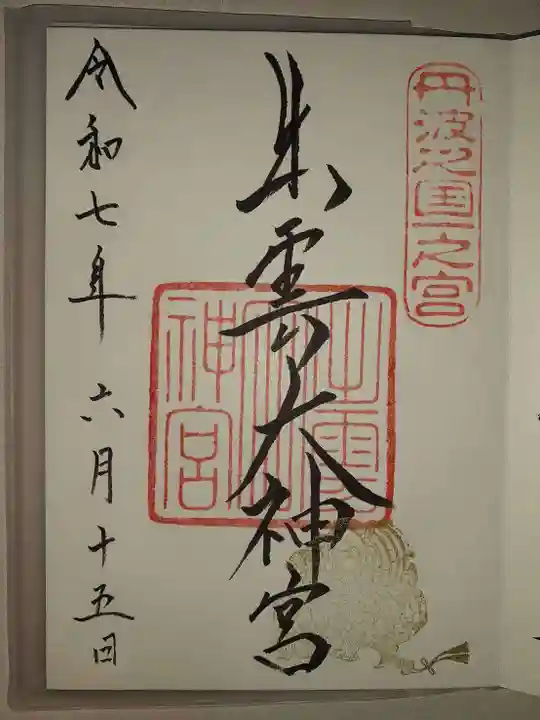 丹波之国一之宮
出雲大神宮
出雲大神宮
令和七年 六月十五日